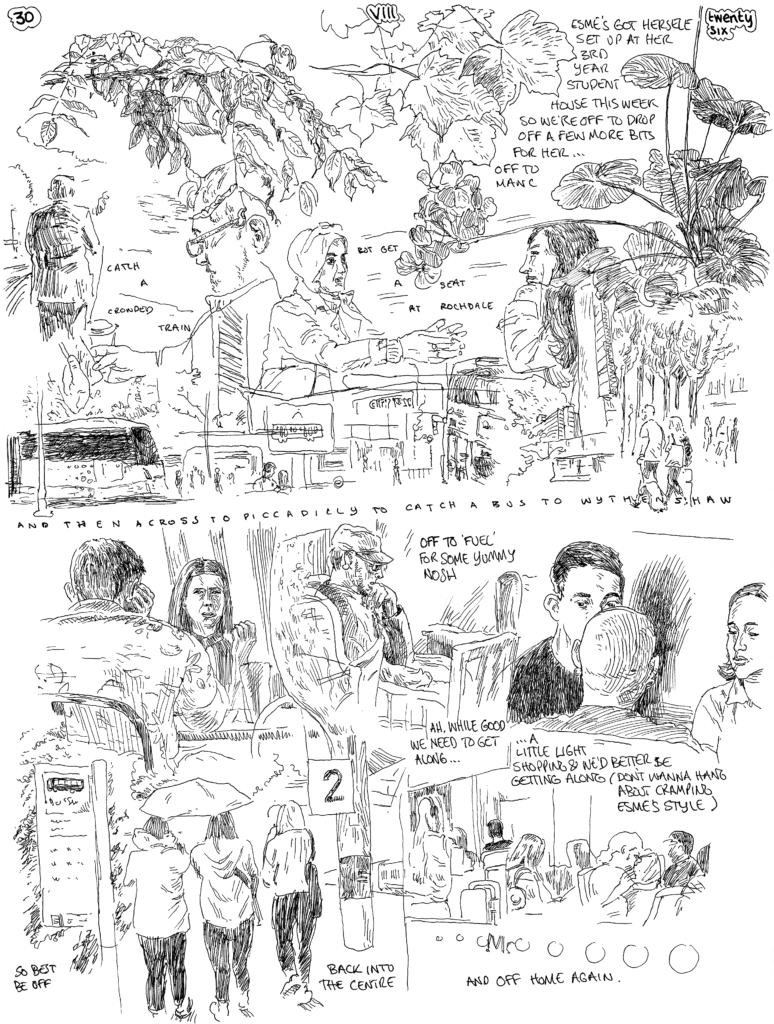 30
VIII
twenty
six
ESMÉ'S GOT HERSELF
SET UP AT HER
3RD
YEAR
STUDENT
HOUSE THIS WEEK
SO WE'RE OFF TO DROP
OFF A FEW MORE BITS
FOR HER...
OFF TO
MANC
CATCH
A
CROWDED
TRAIN
BUT GET
A SEAT
AT ROCHDALE
AND THEN ACROSS TO PICCADILLY TO CATCH A BUS TO WYTHENSHAW
OFF TO 'FUEL'
FOR SOME YUMMY
NOSH
AH, WHILE GOOD
WE NEED TO GET
ALONG...
...A
LITTLE LIGHT
SHOPPING & WE'D BETTER BE
GETTING ALONG (DON'T WANNA HANG
ABOUT CRAMPING
ESMÉ'S STYLE)
2
SO BEST
BE OFF
BACK INTO
THE CENTRE
AND OFF HOME AGAIN.